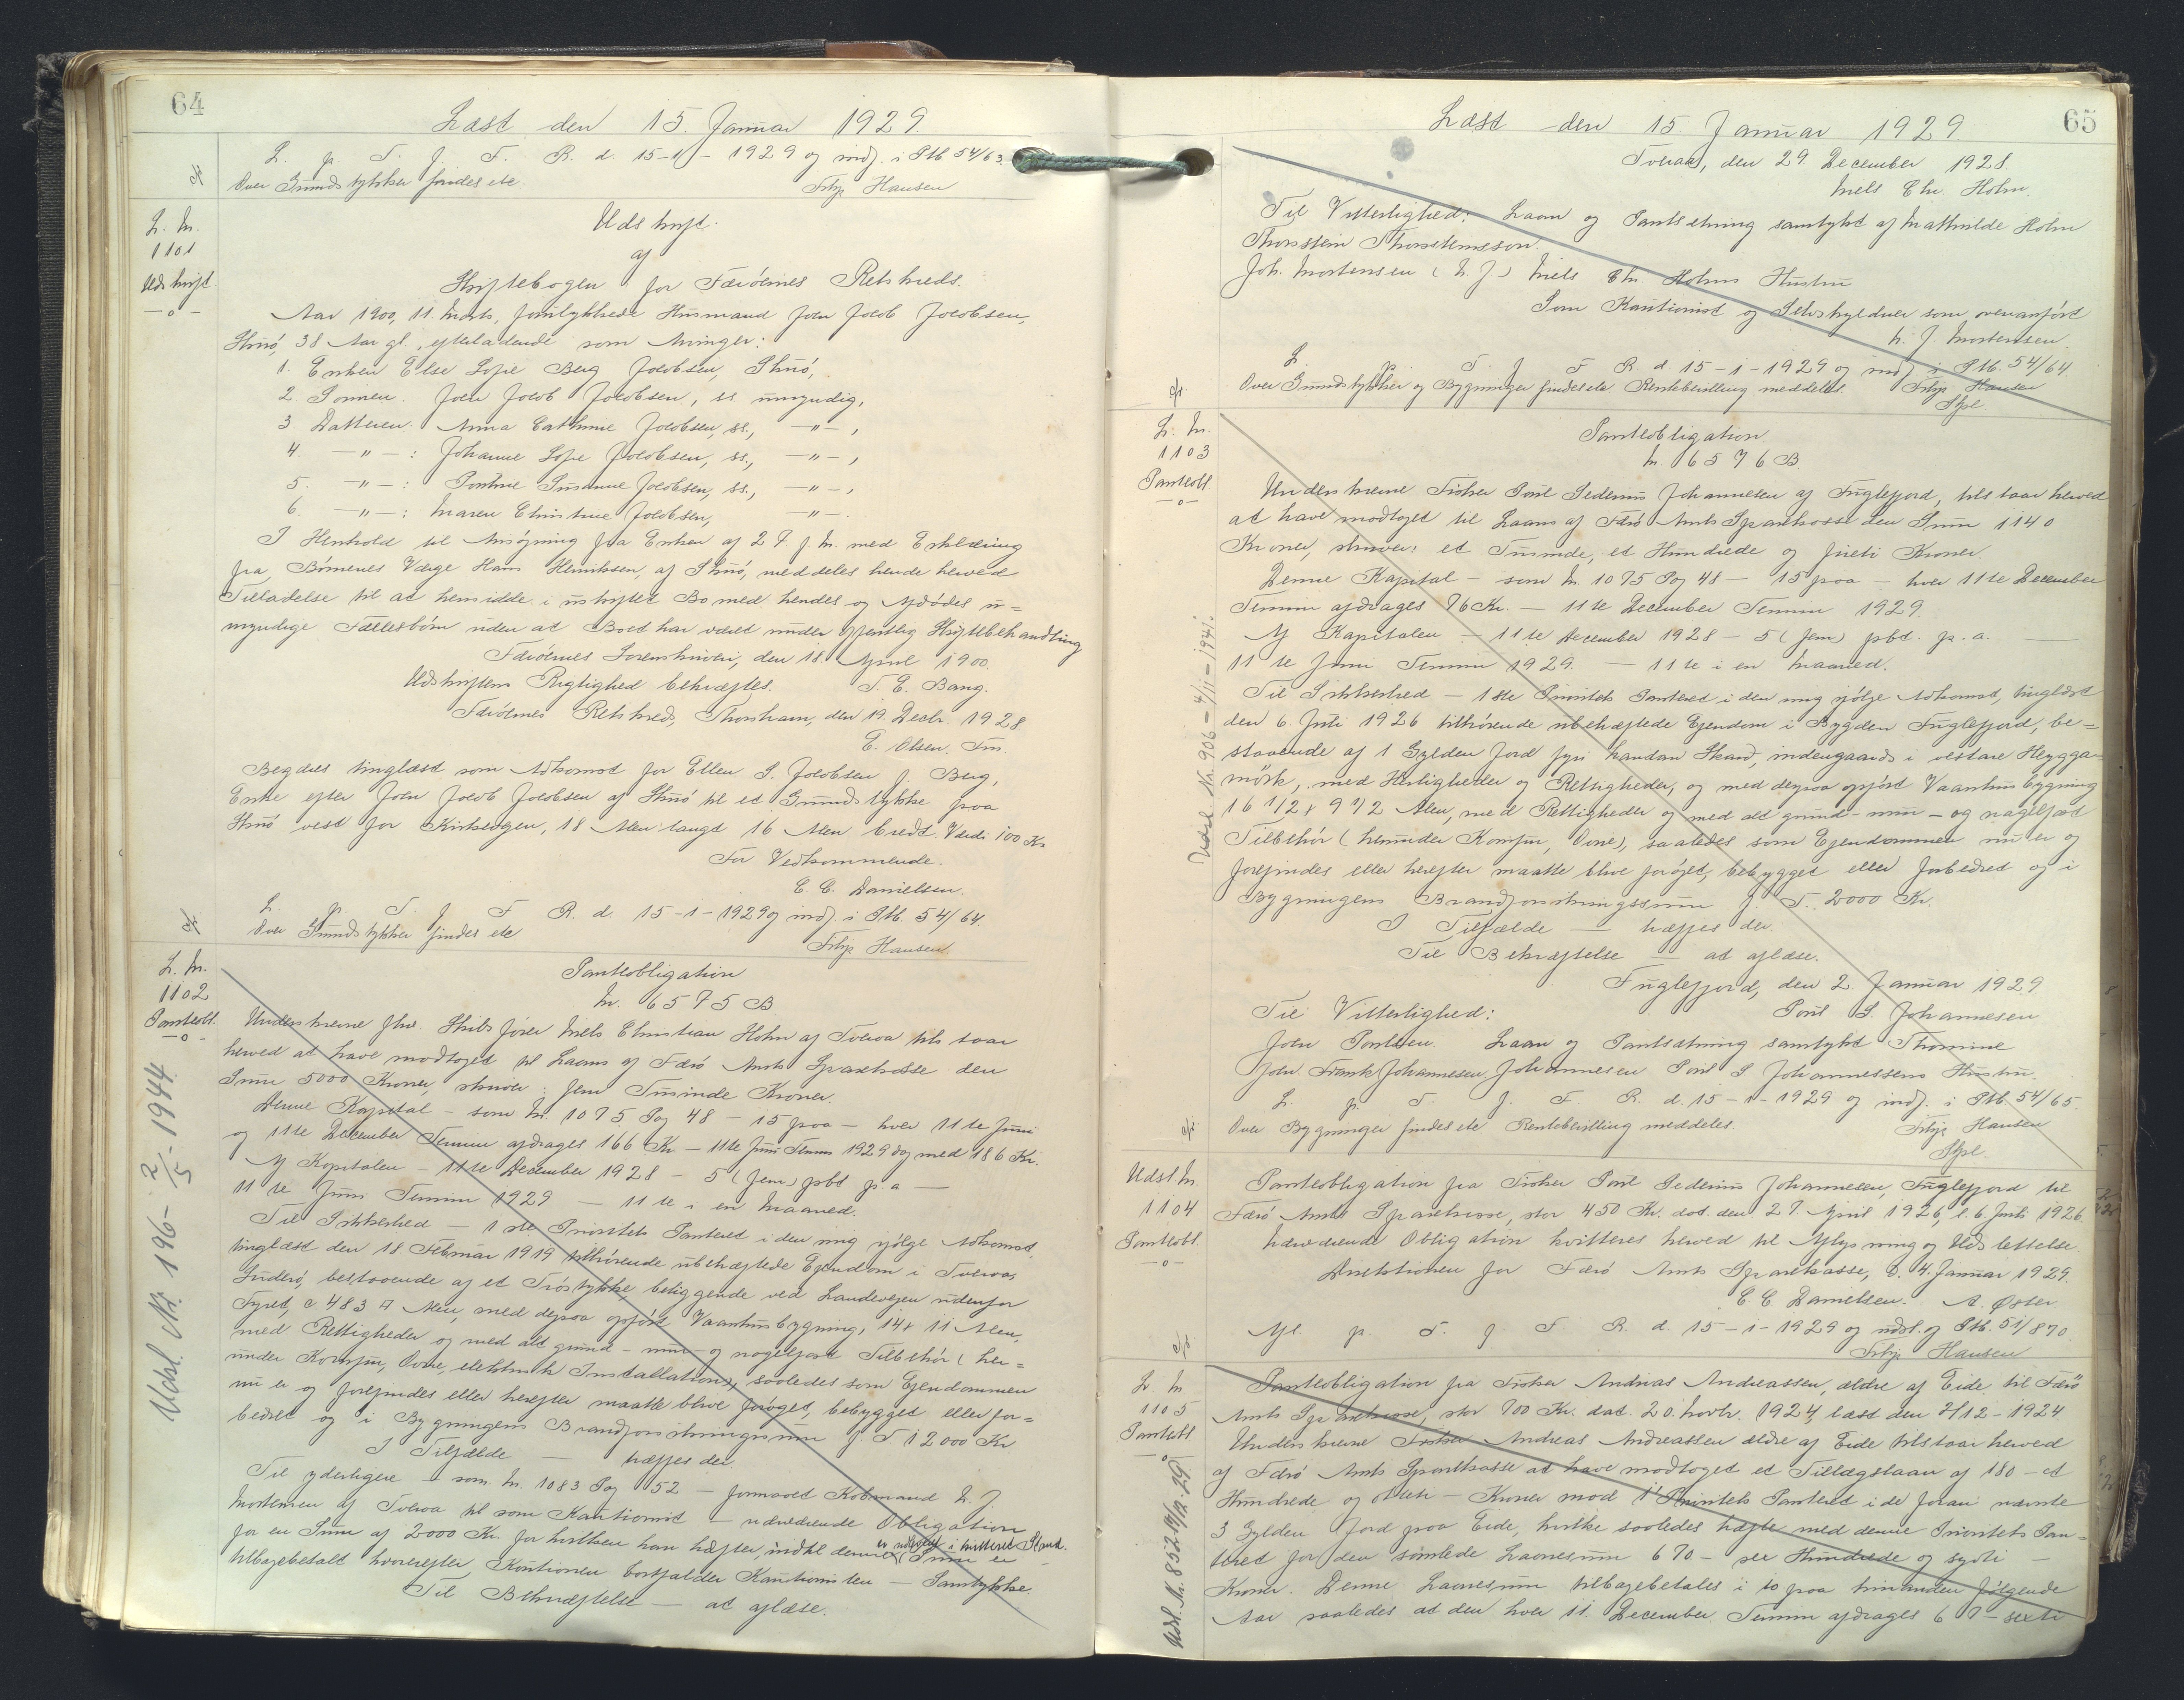 64
Læst den 15. Januar 1929.
L. p. T. f. F. R. d. 15-1-1929 og indf. i Ptb 54/63.
Over Grundstykker findes ete
Frbp Hansen
L. Nr.
1101
Udskrift
-o-
Udskrift
af
Skiftebogen for Færöernes Retskreds.
Aar 1900, 11. Marts, Husmand Joen Jacob Jacobsen,
38 Aar gl., efterladende som Arvinger:
1. Enken Else Sofie Berg Jacobsen,
2. Sønnen. Joen Jacob Jacobsen, ss. umyndig,
3 Datteren. Anna Cathrine Jacobsen, ss., -"-,
4. -"-: Johanne Sofie Jacobsen, ss., -"-,
5. -"-: Susanne Jacobsen, ss., -"-,
6. -"-: Maren Christine Jacobsen, -"-.
I Henhold til Ansögning fra Enken af 27 f. M. med Erklæring
fra Börnenes Værge Hans Henriksen, af meddeles hende herved
Tilladelse til at hensidde i uskiftet Bo med hendes og Afdödes u=
myndige Fællesbörn uden at Boet har været under offentlig Skiftebehandling
Færöernes Sorenskriveri, den 18. April 1900.
Udskriftens Rigtighed bekræftes. T. E. Bang.
Færöernes Retskreds, Thorshavn, den 19. Decbr. 1928
E. Olsen. Fm.
Begæres tinglæst som Adkomst for Ellen S. Jacobsen f. Berg,
Enke efter Joen Jacob Jacobsen af til et Grundstykke paa
vest for 18 Alen langt 16 Alen bredt. Værdi 100 Kr
For Vedkommende.
C. C. Danielsen.
L. p. T. f. F R. d. 15-1-1929 og indf. i Ptb. 54/64.
Over Grundstykker findes ete
Frbp Hansen
L. Nr.
1102
Panteobl.
-o-
Panteobligation
Nr. 6575 B
Underskrevne fhv. Skibsförer Niels Christian Holm af Tveraa tilstaar
herved at have modtaget til Laans af Færö Amts Sparekasse den
Sum 5000 Kroner, skriver: fem Tusinde Kroner.
Denne Kapital - som Nr. 1075 Pag 48 - 15 paa - hver 11te Juni
og 11te December Termin afdrages 166 Kr - 11te Juni Termin 1929 dog med 186 Kr.
Af Kapitalen - 11te December 1928 - 5 (fem) pbt p. a -
11te Juni Termin 1929 - 11te i en Maaned.
Til Sikkerhed - 1ste Prioritets Panteret i den mig ifölge Adkomst,
tinglæst den 18 Februar 1919 tilhörende ubehæftede Ejendom i Tveraa,
Suderö, bestaaende af et Tröstykke, beliggende ved Landevejen udenfor
c. 483 □ Alen, med derpaa opfört Vaaningsbygning, 14 x 11 Alen,
med Rettigheder og med alt grund - mur - og nagelfast Tilbehör (her=
under Komfur, Ovne, elektrisk Installation), saaledes som Ejendommen
nu er og forefindes eller herefter maatte blive foröget, bebygget eller for=
bedret og i Bygningens Brandforsikringssum f. T. 12000 Kr
I Tilfælde - træffes der.
Til yderligere - som Nr. 1083 Pag 52 - formaaet Købmand N. J.
Mortensen af Tveraa til som Kautionist - nærværende Obligation
for en Sum af 2000 Kr. for hvilken han hæfter, indtil denne Sum er
tilbagebetalt hvorefter Kautionen bortfalder Kautionisten - Samtykke.
Til Bekræftelse - at aflæse.
Udsl. Nr. 196 - 2/5 - 1944
65
Læst den 15. Januar 1929
Tveraa, den 29 December 1928
Niels Chr. Holm.
Til Vitterlighed: Laan og Pantsætning samtykt af Mathilde Holm
Thorstein Thorsteinsson.
Joh. Mortensen (N. J.) Niels Chr. Holms Hustru
Som Kautionist og Selvskyldner som ovenanfört
N. J. Mortensen
L. p. T. f. F R. d. 15-1-1929 og indf. i Ptb. 54/64.
Over Grundstykker og Bygninger findes ete Rentebevilling meddelt.
Frbp Hansen
L. Nr.
1103
Panteobl
-o-
Panteobligation
Nr. 6576 B.
Underskrevne Fisker Poul Johannesen af Fuglefjord, tilstaar herved
at have modtaget til Laans af Færö Amts Sparekasse den Sum 1140
Kroner, skriver: et Tusinde, et Hundrede og fireti Kroner.
Denne Kapital - som Nr 1075 Pag 48 - 15 paa - hver 11te December
Termin afdrages 76 Kr. - 11te December Termin 1929.
Af Kapitalen - 11te December 1928 - 5 (fem) pbt. p. a. -
11te Juni Termin 1929. - 11te i en Maaned.
Til Sikkerhed - 1ste Prioritets Panteret i den mig ifölge Adkomst, tinglæst
den 6. Juli 1926 tilhörende ubehæftede Ejendom i Bygden Fuglefjord, be=
staaende af 1 Gylden Jord fyri handan Skard, indengaards i vestare
mörk, med Herligheder og Rettigheder, og med derpaa opfört Vaaningsbygning
16 1/2 x 9 1/2 Alen, med Rettigheder og med alt grund - mur - og nagelfast
Tilbehör (herunder Komfur, Ovne), saaledes som Ejendommen nu er og
forefindes eller herefter maatte blive foröget, bebygget eller forbedret og i
Bygningens Brandforsikringssum f. T. 2000 Kr.
I Tilfælde - træffes der.
Til Bekræftelse - at aflæse.
Fuglefjord, den 2. Januar 1929
Til Vitterlighed: Poul S. Johannesen
Joen Poulsen. Laan og Pantsætning samtykt Thomine
Johr. Frank Johannesen Johannesen Poul S Johannessens Hustru.
L. p. T. f. F. R. d. 15-1-1929 og indf. i Ptb. 54/65.
Over Bygninger findes ete Rentebevilling meddeles.
Frbp Hansen
Udsl. Nr. 906 - 4/11 - 1941.
Udsl Nr.
1104
Panteobl.
-o-
Panteobligation fra Fisker Poul Johannesen, Fuglefjord til
Færö Amts Sparekasse, stor 450 Kr. dat. den 27. April 1926, l. 6. Juli 1926.
Nærværende Obligation kvitteres herved til Aflysning og Udslettelse.
Direktionen for Færö Amts Sparekasse, d. 4. Januar 1929.
C. C. Danielsen. A. Øster
Afl. p. T. f. F. R. d. 15-1-1929 og udsl. af Ptb. 51/870.
Frbp Hansen
L. Nr
1105
Panteobl
-o-
Panteobligation fra Fisker Andrias Andreassen, ældre af Eide, til Færö
Amts Sparekasse, stor 700 Kr. dat. 20. Novbr. 1924, læst den 2/12-1924.
Underskrevne Fisker Andreas Andreassen ældre af Eide tilstaar herved
af Færö Amts Sparekasse at have modtaget et Tillægslaan af 180 - et
Hundrede og otteti - Kroner mod 1' Prioritets Panteret i de foran nævnte
3 Gylden Jord paa Eide, hvilke saaledes hæfte med denne Prioritets Pan=
teret for den samlede Laanesum 670 - seks Hundrede og syvti -
Kroner. Denne Laanesum tilbagebetales i 10 paa hinanden fölgende
Aar saaledes at den hver 11. December Termin afdrages 67 - sexti
Udsl. Nr. 852 - 17/12. 29